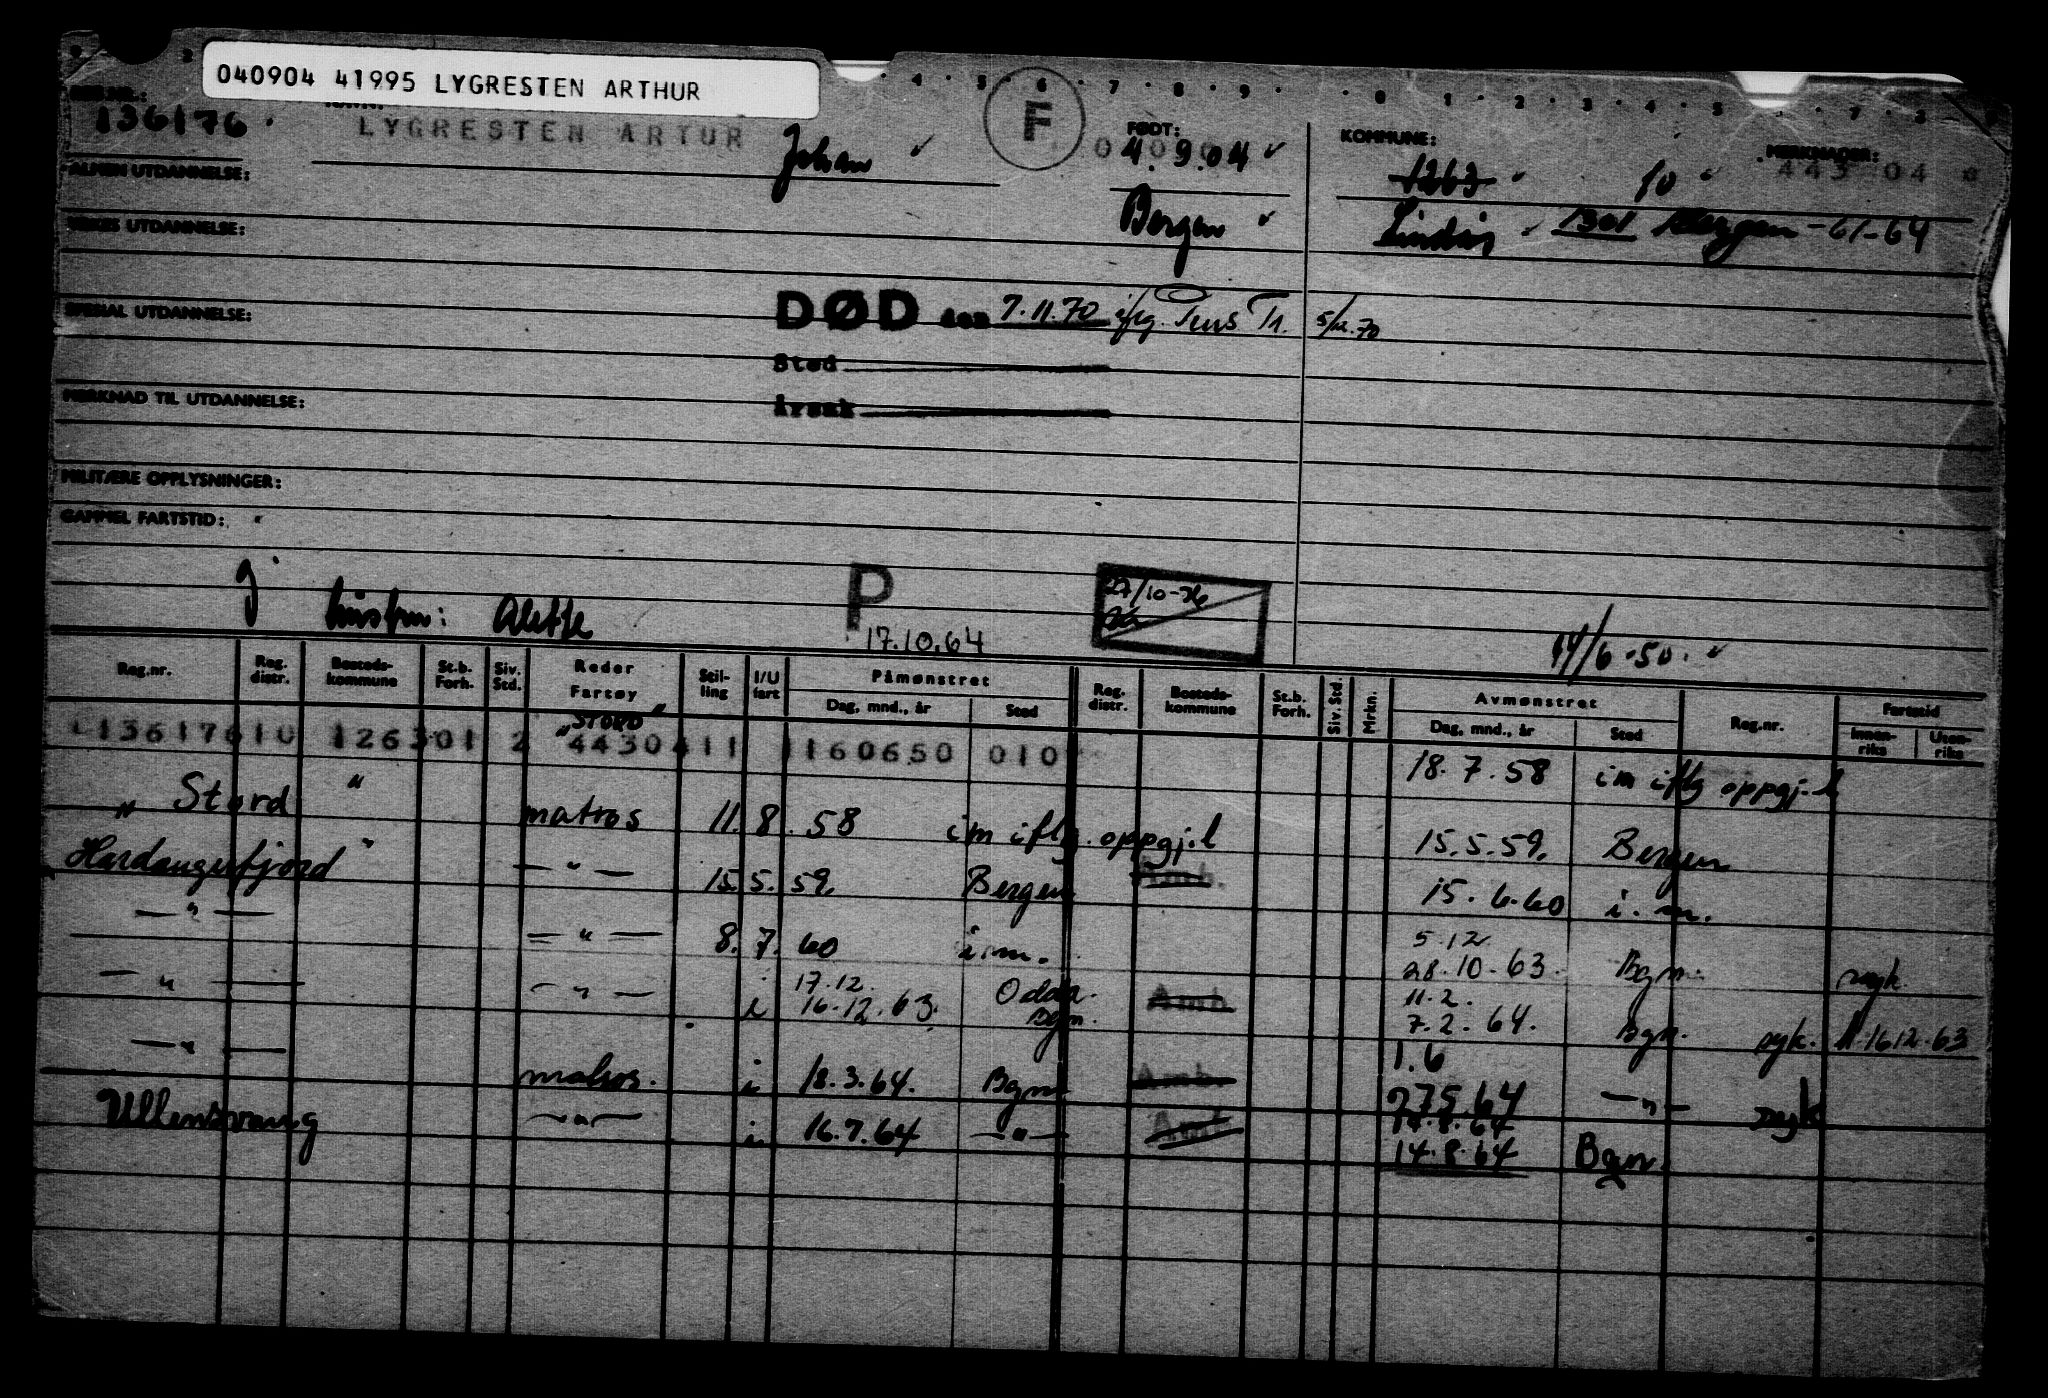 040904 41995 LYGRESTEN ARTHUR
136176
LYGRESTEN ARTUR Johan
F
FØDT: 4.9.04
Bergen
KOMMUNE: 1263 10
MERKNADER: 443 04
Lindås 1301 Bergen -61-64
ALMEN UTDANNELSE:
YRKES UTDANNELSE:
SPESIAL UTDANNELSE:
DØD den 7.11.70 iflg. Pens Tr. 5/12.70
Sted
Årsak
MERKNAD TIL UTDANNELSE:
MILITÆRE OPPLYSNINGER:
GAMMEL FARTSTID:
g hustru: Alette
P 17.10.64
27/10-76
14/6.50.
Reg.nr. Reg. distr. Bosteds-kommune St.b. Forh. Siv. Std. Reder Fartøy Stil-ling I/U fart Påmønstret Dag, mnd., år Sted Reg. distr. Bosteds-kommune St.b. Forh. Siv. Std. Mrkn. Avmønstret Dag, mnd., år Sted Reg.nr. Fartstid Innen-riks Uten-riks
"STORD"
13617610 126301 2 4430411 1160650 010 18.7.58 i m iflg oppgj. l
" Stord " matros 11.8.58 i m iflg. oppgj. l 15.5.59. Bergen
Hardangerfjord " — " — 15.5.59. Bergen Amb. 15.6.60 i.m.
— " — — " — 8.7.60 i.m. 5.12 28.10.63. Bgn. syk.
— " — — " — i 17.12. 16.12.63. Odda. Bgn. Amb 11.2. 7.2.64. Bgn. syk. 16.12.63
— " — matros. i 18.3.64. Bgn. Amb 1.6 27.5.64 — " — syk
Ullensvang — " — i 16.7.64 — " — Amb 14.8.64
14.8.64 Bgn.